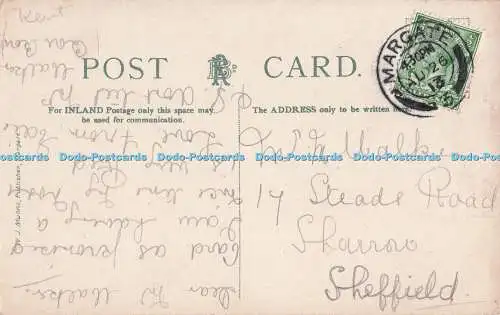 POST CARD.
For INLAND Postage only this space may
be used for communication.
The ADDRESS only to be written here.
MARGATE
26
13
Dear Mr Walker.
Card as promised
I am having a
nice time.
is very
Love from
P.S. dont tell Mrs
Walker
Kent
17 Steade Road
Sharrow
Sheffield.
Dodo-Postcards Dodo-Postcards Dodo-Postcards Dodo-Postcards Dodo-Postcards Dodo-Postcards